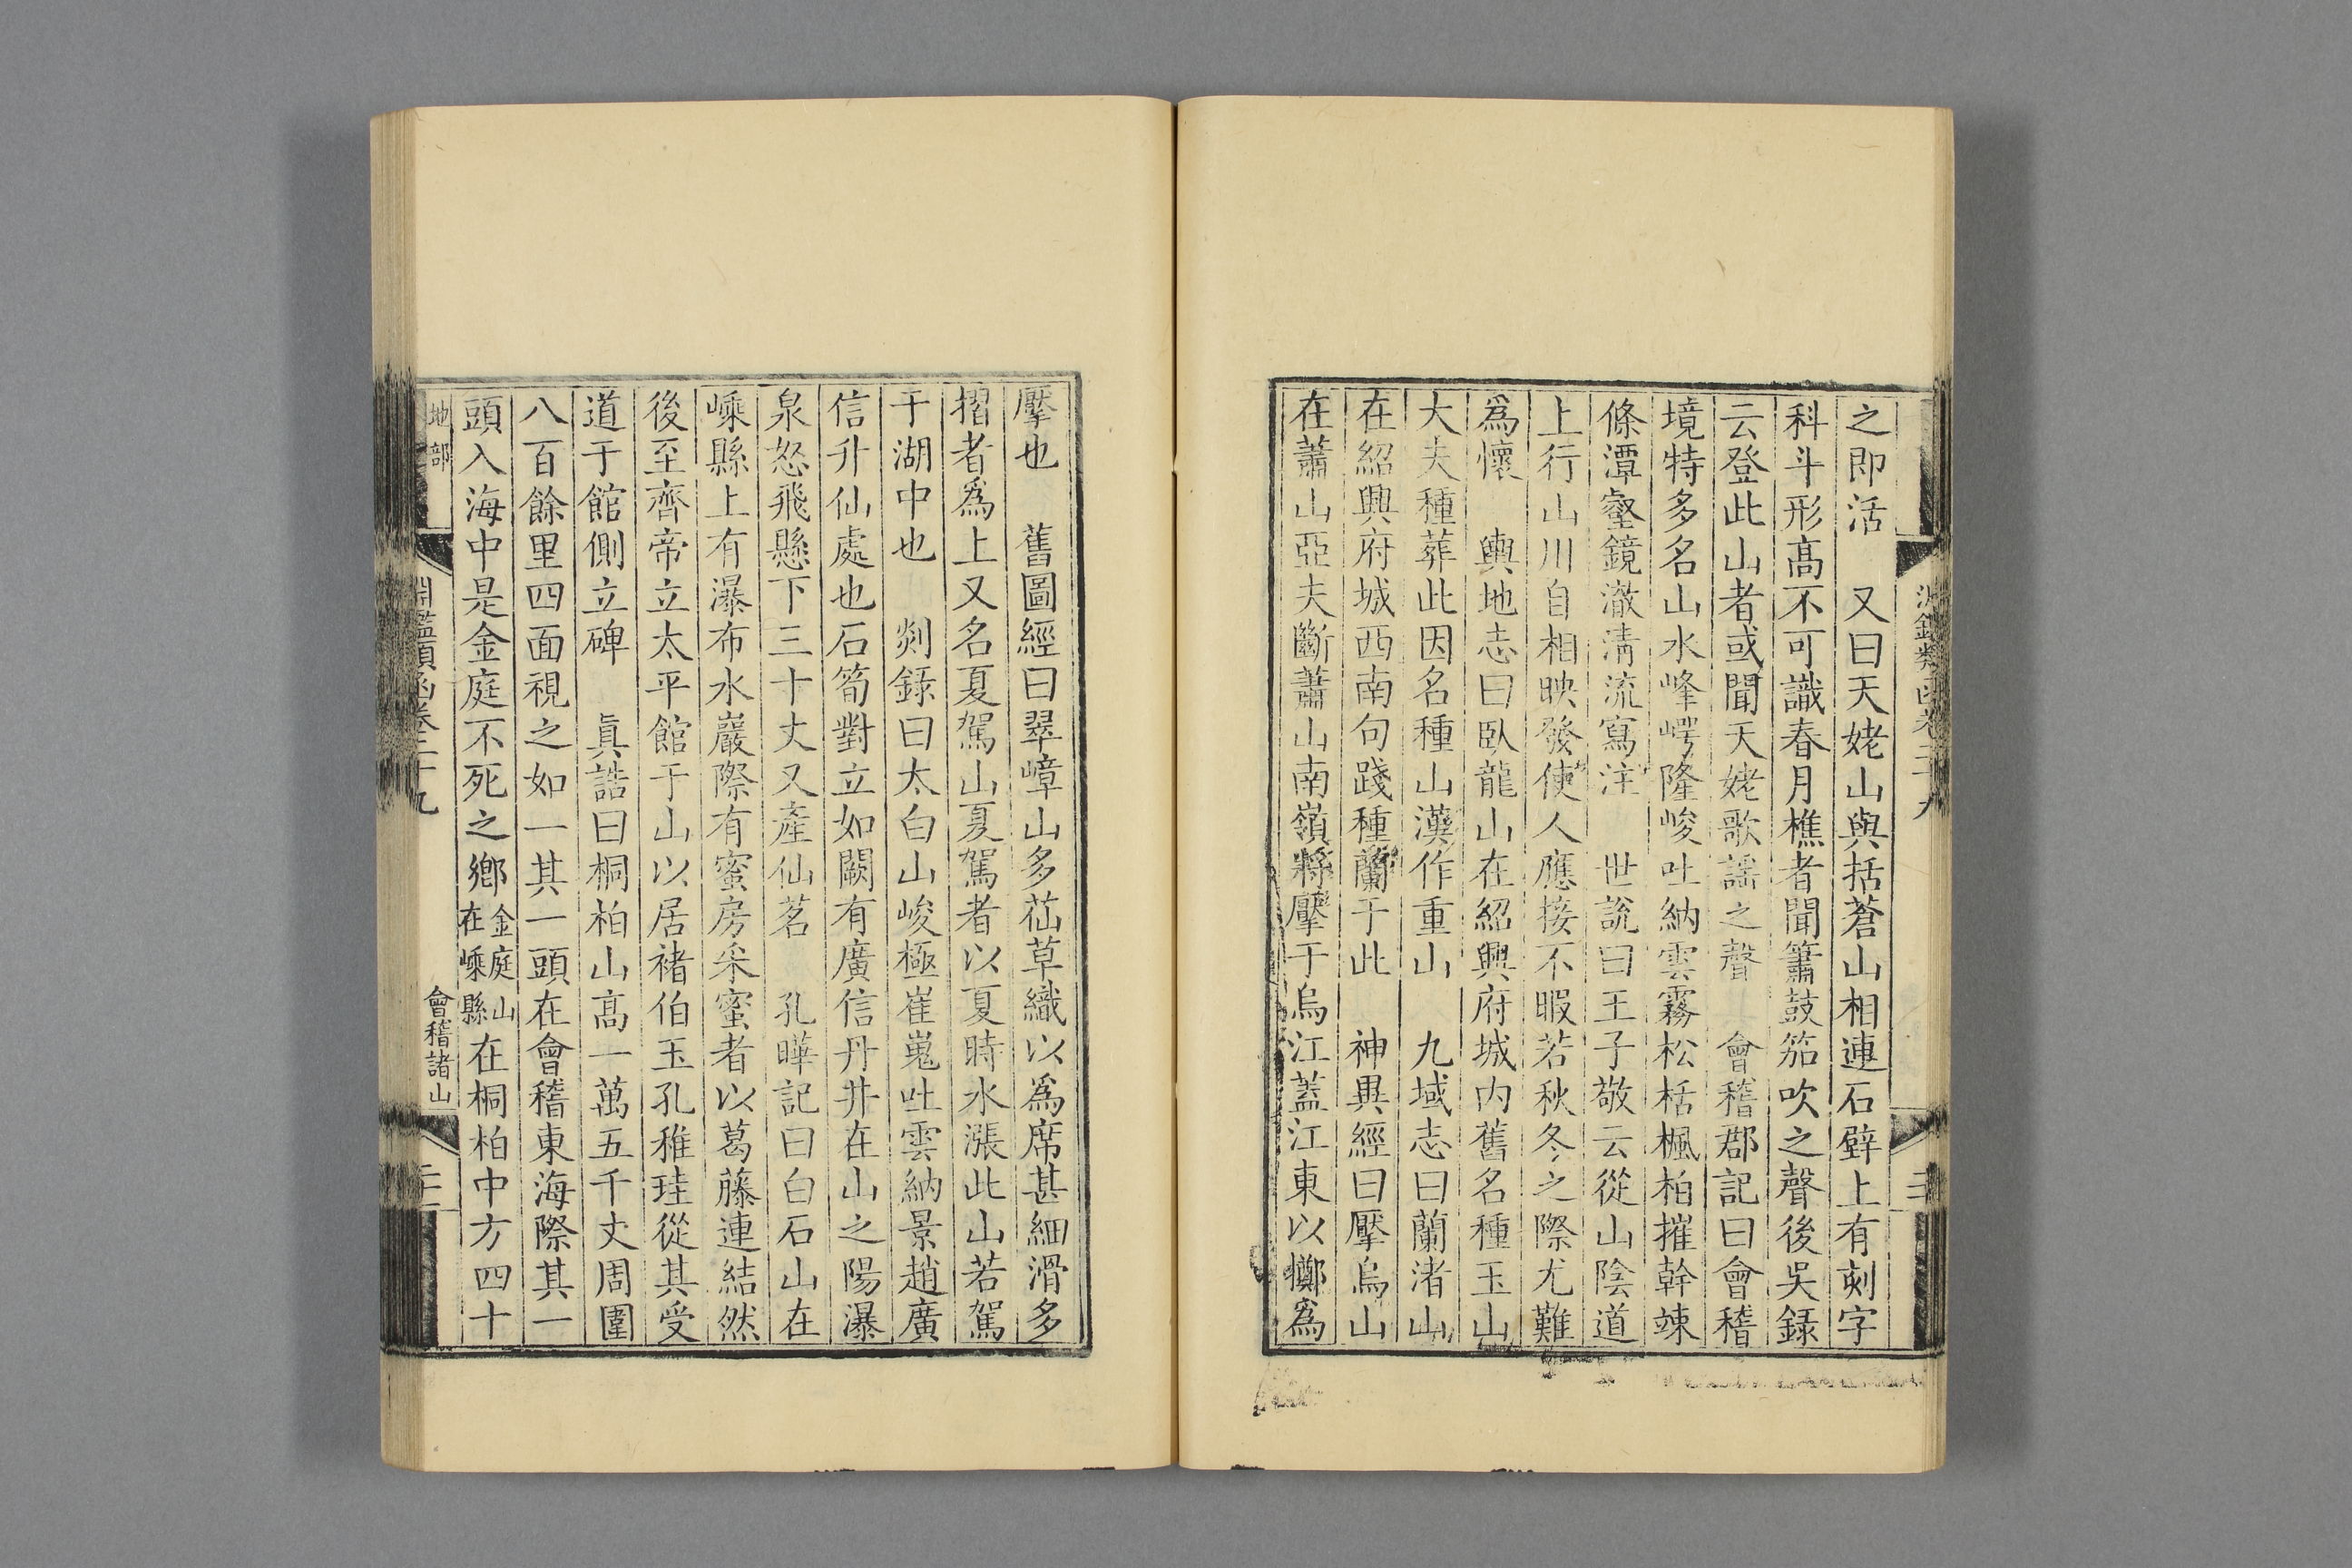 之即活　又曰天姥山與括蒼山相連石壁上有刻字
科斗形高不可識春月樵者聞簫鼓笳吹之聲後吳錄
云登此山者或聞天姥歌謡之聲　會稽郡記曰會稽
境特多名山水峰崿隆峻吐納雲霧松栝楓柏擢幹竦
條潭壑鏡澈淸流寫注　世說曰王子敬云從山陰道
上行山川自相映發使人應接不暇若秋冬之際尤難
爲懷　輿地志曰臥龍山在紹興府城內舊名種玉山
大夫種葬此因名種山漢作重山　九域志曰蘭渚山
在紹興府城西南句踐種蘭于此　神異經曰壓烏山
在蕭山亞夫斷蕭山南嶺將壓于烏江蓋江東以擲爲
壓也　舊圖經曰翠嶂山多莣草織以爲席甚細滑多
摺者爲上又名夏駕山夏駕者以夏時水漲此山若駕
于湖中也　剡錄曰太白山峻極崔嵬吐雲納景趙廣
信升仙處也石筍對立如闕有廣信丹井在山之陽瀑
泉怒飛懸下三十丈又產仙茗　孔曄記曰白石山在
嵊縣上有瀑布水巖際有蜜房采蜜者以葛藤連結然
後至齊帝立太平館于山以居褚伯玉孔稚珪從其受
道于館側立碑　眞誥曰桐柏山高一萬五千丈周圍
八百餘里四面視之如一其一頭在會稽東海際其一
頭入海中是金庭不死之鄉金庭山在嵊縣在桐柏中方四十
地部
淵鑑類函卷二十九
會稽諸山